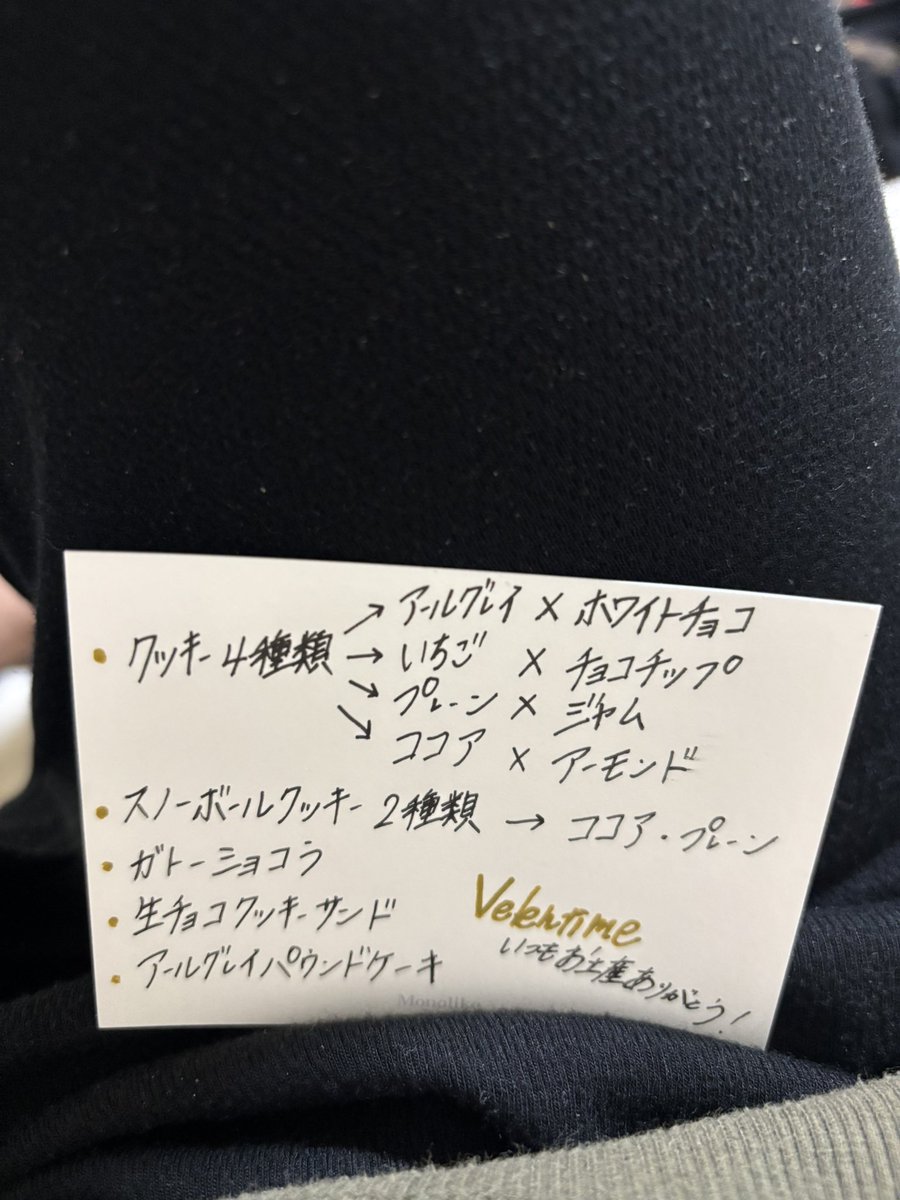 ・クッキー4種類 → アールグレイ × ホワイトチョコ
→ いちご × チョコチップ
→ プレーン × ジャム
→ ココア × アーモンド
・スノーボールクッキー 2種類 → ココア・プレーン
・ガトーショコラ
・生チョコクッキーサンド
・アールグレイパウンドケーキ
Velentime
いつもお土産ありがとう!
Monolike